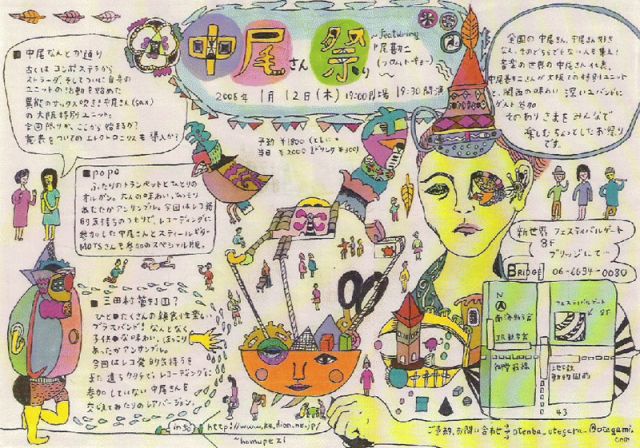 中尾さん祭り
~featuring
中尾勘二
(フロムトーキョー)
2006年 1月12日(木) 19:00開場 19:30開演
予約 ¥1800 (ともに+
当日 ¥2000 ドリンク ¥500)
全国の中尾さん、中尾さん好き
なん、そのどちらでもない人も集え!
音楽の世界の中尾さん代表、
中尾勘二さんが大阪での特別ユニット
と、関西の味わい深いユニバンドに
ゲスト参加
そのありさまをみんなで
楽しむちょっとしたお祭り
です。
■中尾なんとか通り
古くはコンポステラから
ストラーダ、そしてついに自身の
ユニットの活動を始めた
異能のサックス吹き!中尾さん(sax)
の大阪特別ユニット。
全国祭りが、ここから始まるか?
発表をついてのエレクトロニクスも導入か?
■popo
ふたりのトランペットとひとりの
オルガン。大人の味わい、ちいさく
あたたかアンサンブル。今回はレコ発
的気持ちのうもりで、レコーディングに
参加した中尾さんとスティールギター
MOTSさんを加えてのスペシャル版。
■三田村管打団?
ひと癖たくさんの顔色は悪い
ブラスバンド! なんとなく
子供な味わい、ほっこり
あったかアンサンブル。
今回はレコ発的気持ちを
また違うクチで、レコーディングに
参加していない中尾さんを
交えてみたりのレアバージョン。
新世界 フェスティバルゲート
8F
ブリッジにて
Bridge 06-6634-0080
N
フェスティバルゲート
8F
JR新今宮
地下鉄
動物園前
43
info http://www.ks.dion.ne.jp/
~homupezi
ご予約、お問い合わせ→ otenba_otegara_@otegami.com